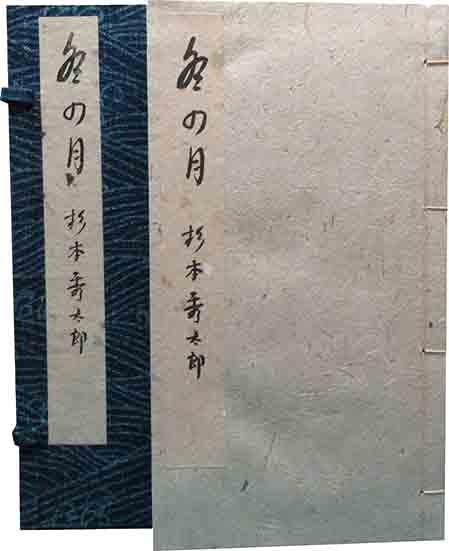 冬の月 杉本秀太郎
冬の月 杉本秀太郎